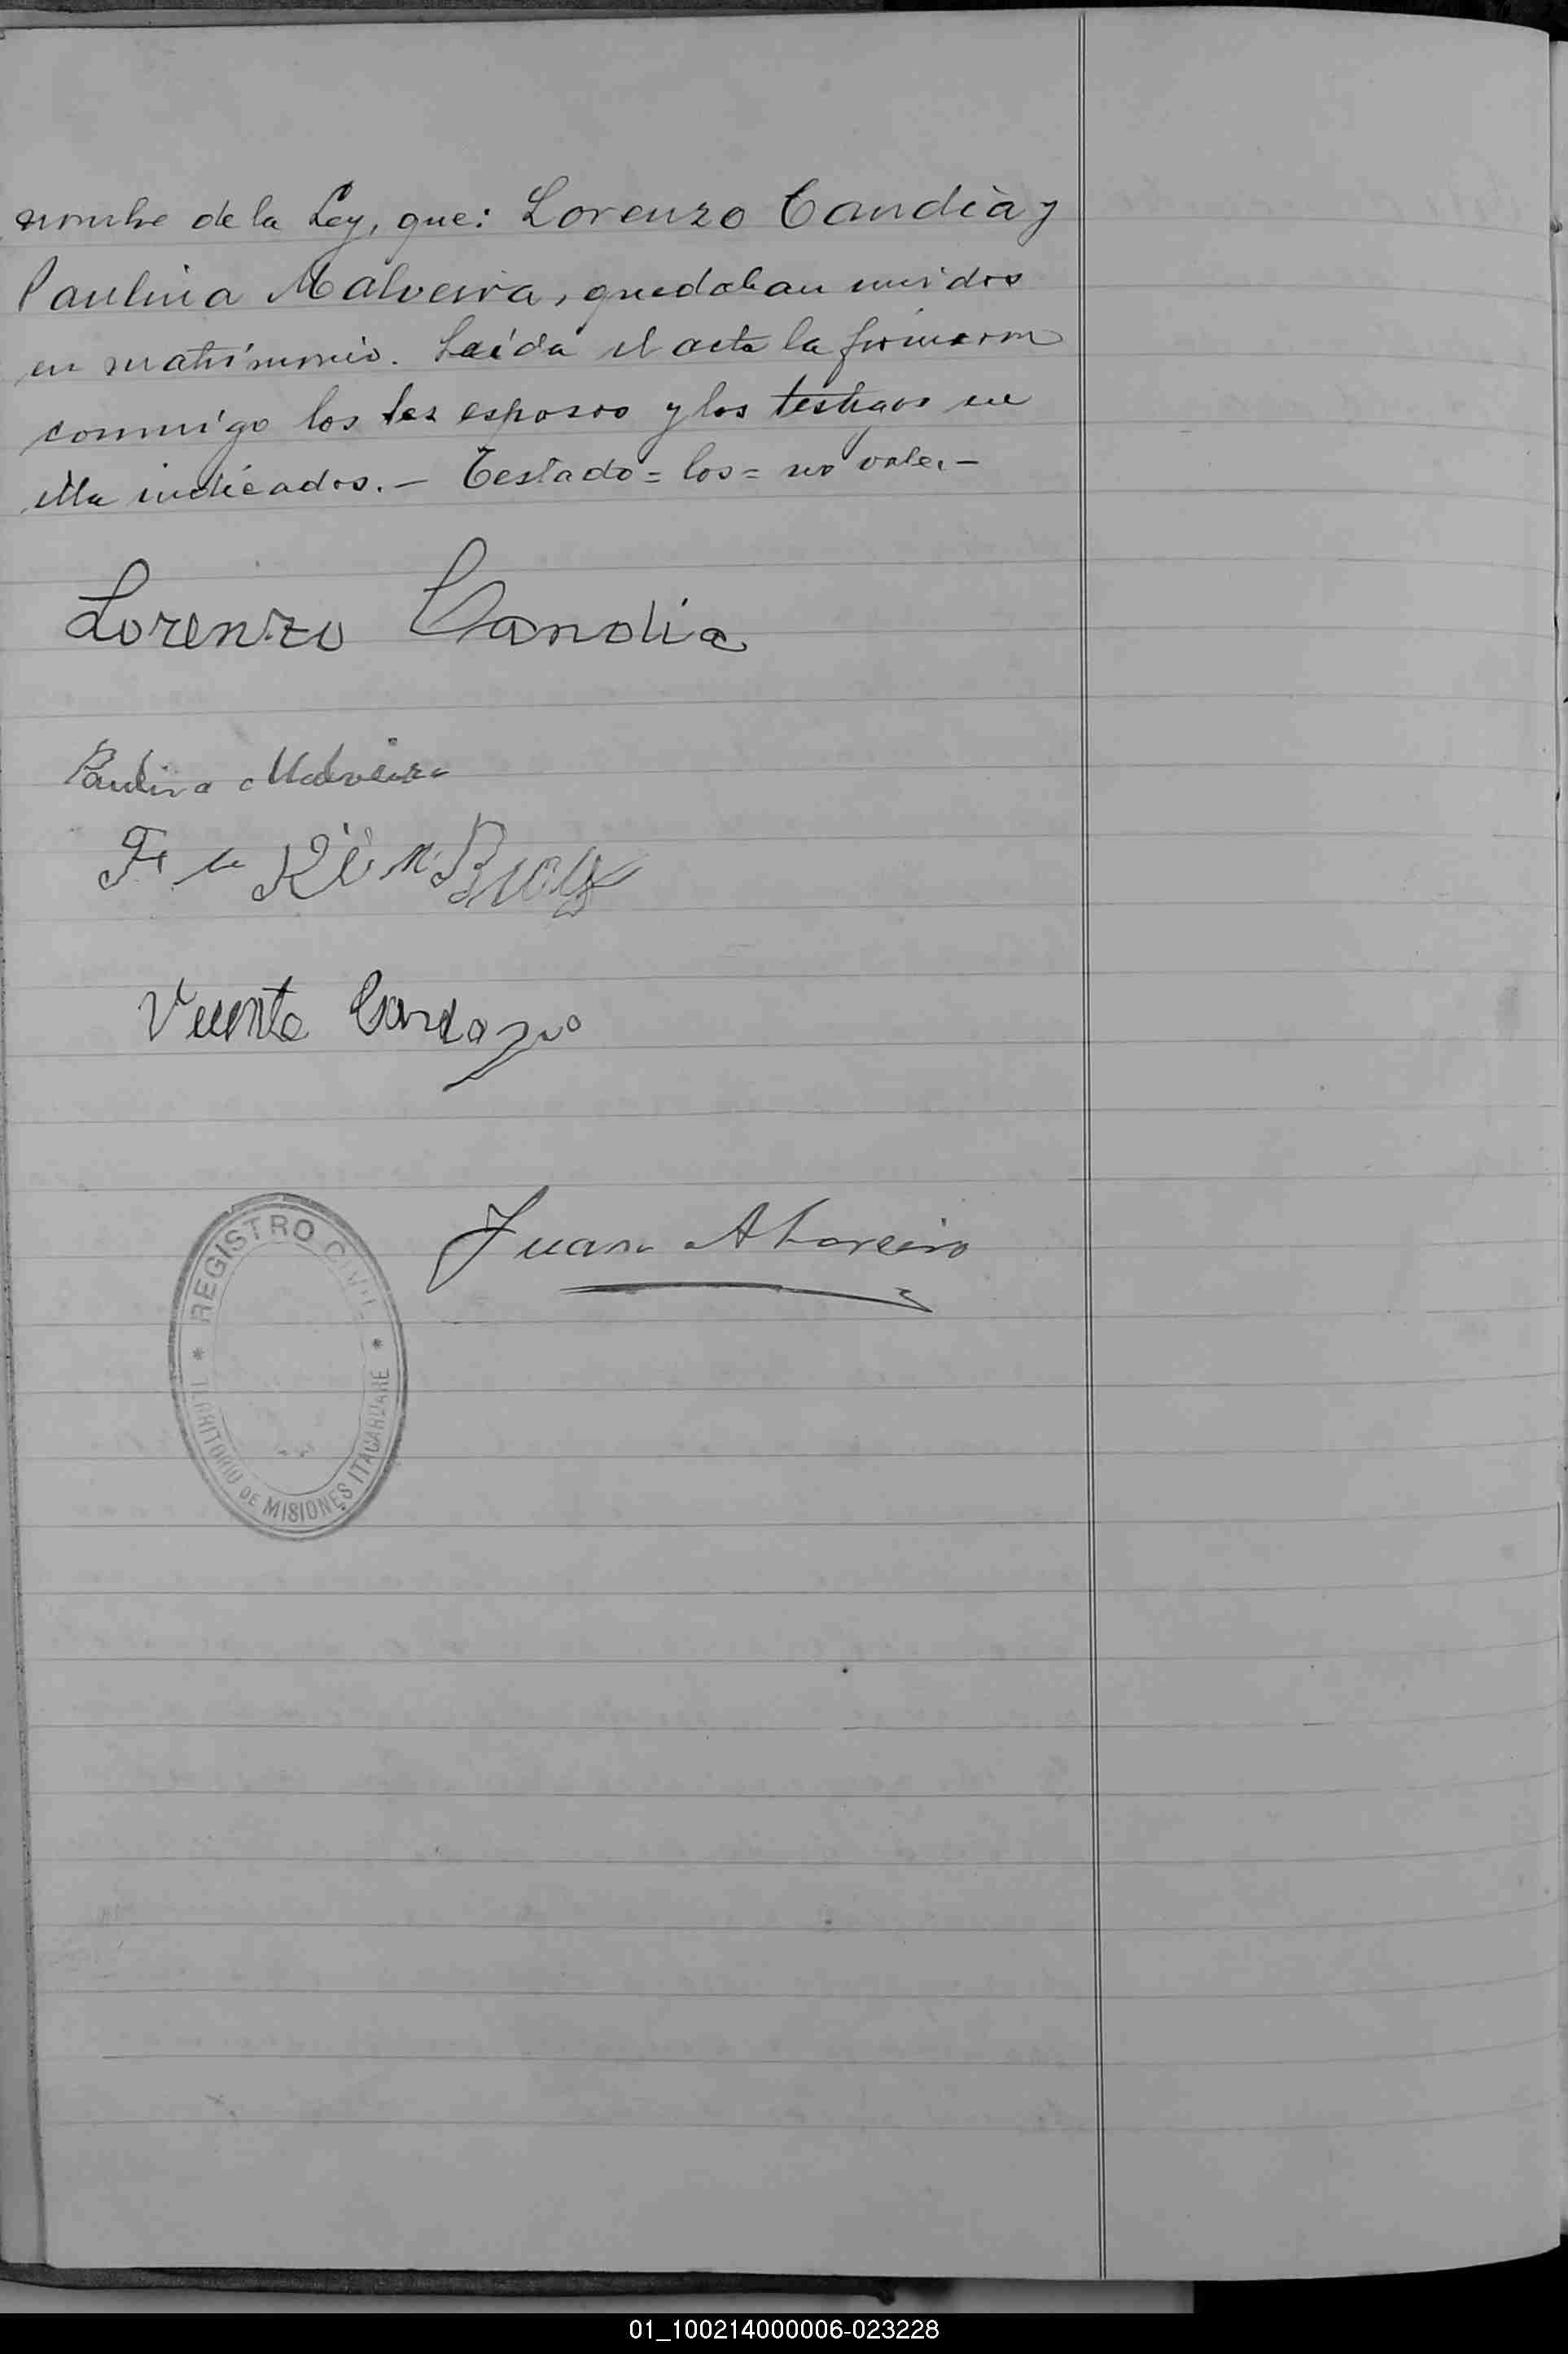 nombre de la Ley, que: Lorenzo Candia y
Paulina Malveira, quedaban unidos
en matrimonio. Leída el acta la firmaron
conmigo los los esposos y los testigos en
ella indicados.— Testado = los = no vale.—
Lorenzo Candia
Paulina Malveira
Vicente Cardozo
Juan
REGISTRO CIVIL
TERRITORIO DE MISIONES ITACARUARE
01_100214000006-023228